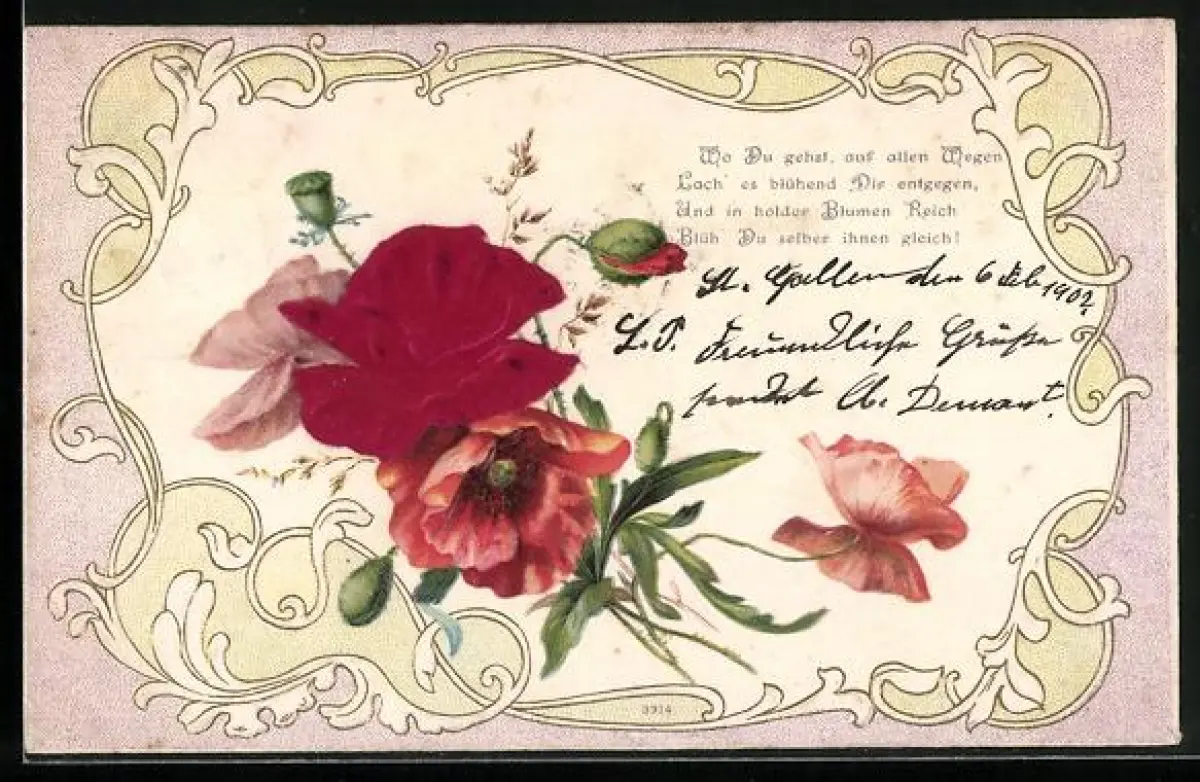 Wo Du gehst, auf allen Wegen
Lach' es blühend Dir entgegen,
Und in holder Blumen Reich
Blüh' Du selber ihnen gleich!
St. Gallen den 6 Feb 1902
L. P. Freundliche Grüße
sendet A. Demant.
3914